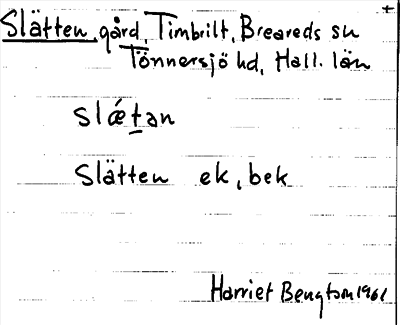 +
Slätten, gård, Timbrilt, Breareds sn
Tönnersjö hd, Hall. län
slǽtan
Slätten ek, bek
Harriet Bengtson 1961